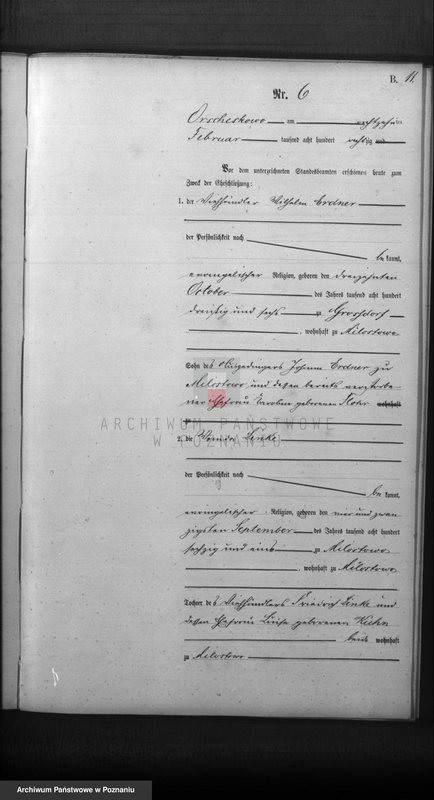 B. 11.
Nr. 6
Orscheskowo am achtzehnten
Februar tausend acht hundert achtzig
Vor dem unterzeichneten Standesbeamten erschienen heute zum
Zweck der Eheschließung:
1. der Viehhändler Wilhelm Erdner
der Persönlichkeit nach
bekannt,
evangelischer Religion, geboren den dreizehnten
October des Jahres tausend acht hundert
dreißig und sechs zu Grossdorf
, wohnhaft zu Milostowo
Sohn des Johann Erdner zu
Milostowo und dessen bereits verstorbe-
nen Ehefrau Karoline geborenen wohnhaft
ARCHIWUM PAŃSTWOWE
W POZNANIU
2. die Linke
der Persönlichkeit nach
bekannt,
evangelischer Religion, geboren den vier und zwan
zigsten September des Jahres tausend acht hundert
sechzig und eins zu Milostowo
, wohnhaft zu Milostowo
Tochter des Viehhändlers Friedrich Linke und
dessen Ehefrau Luise geborenen Kuhn
beide wohnhaft
zu Milostowo
Archiwum Państwowe w Poznaniu